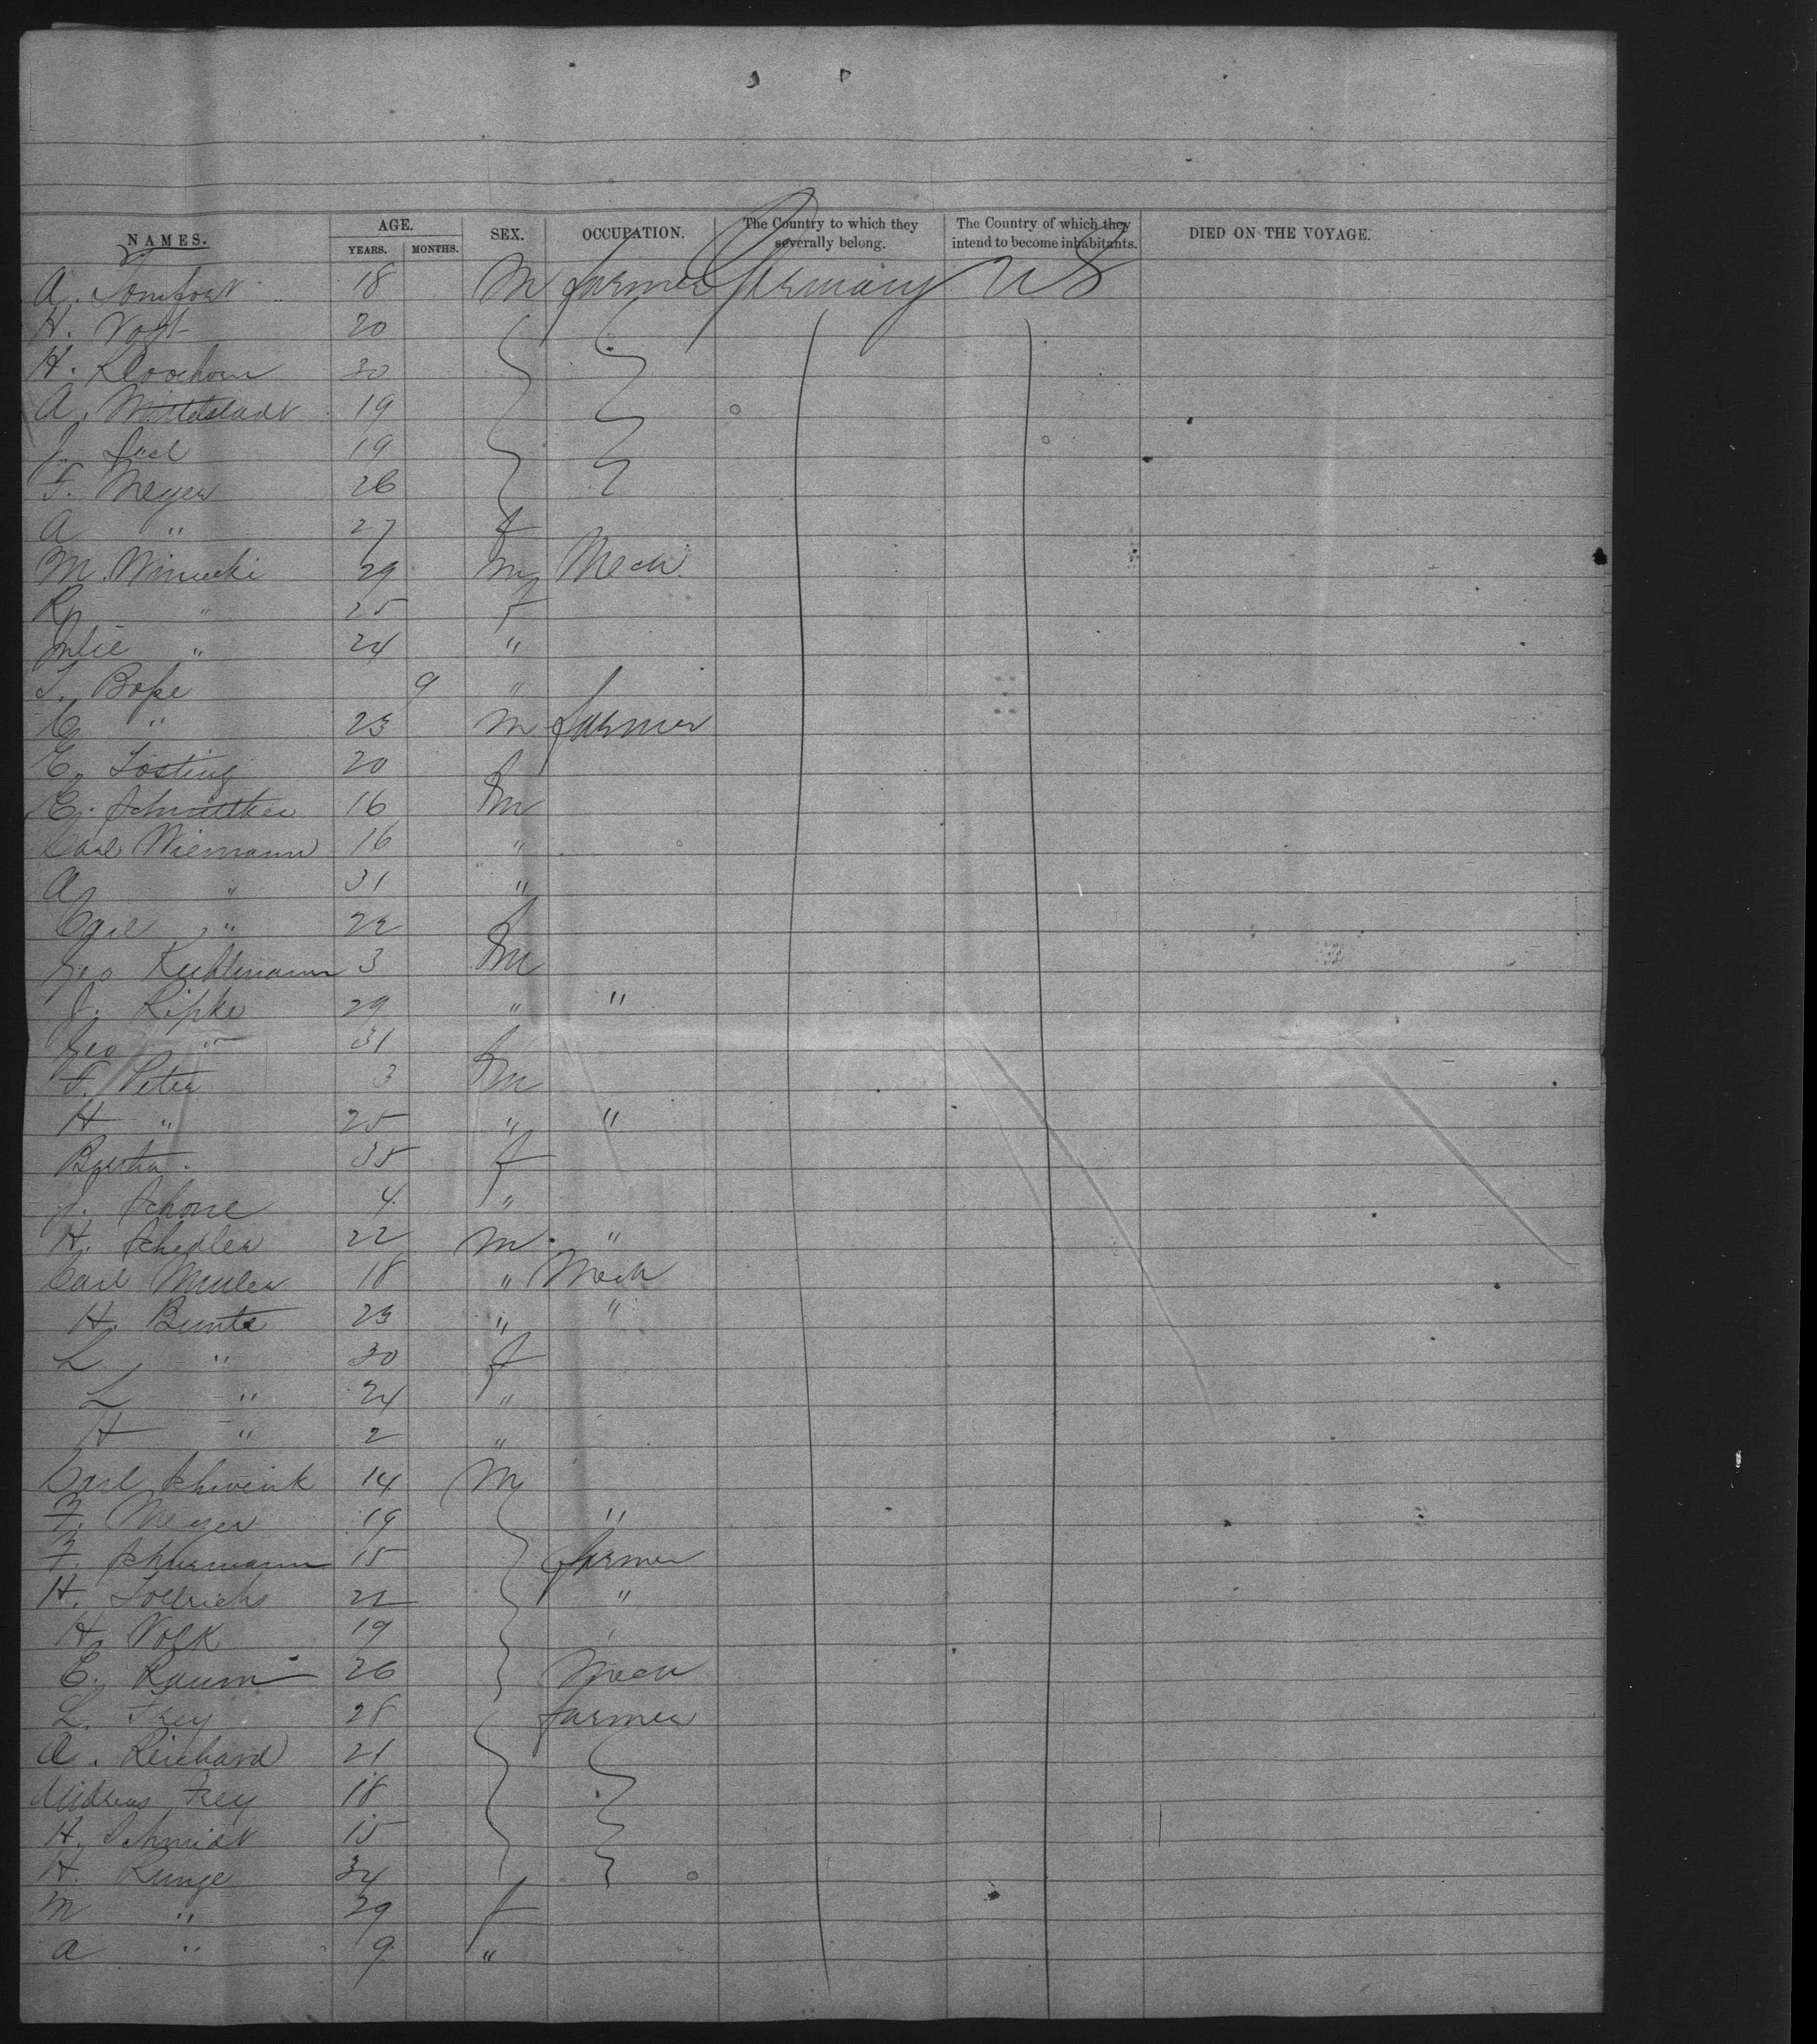 NAMES. AGE. YEARS. MONTHS. SEX. OCCUPATION. The Country to which they severally belong. The Country of which they intend to become inhabitants. DIED ON THE VOYAGE.
A. 18 M farmer Germany US
H. Vogt 20
H. 30
A. Mittelstadt 19
J. 19
F. Meyer 26
A " 27 f
M. Winiecki 29 m Mech.
R " 25 f
Julie " 24 "
T. Bope 9 "
C " 23 m farmer
E. Losting 20 f
E. 16 m
Carl Wiemann 16 "
A " 31 "
Carl " 22 f
Geo Kuhlmann 3 m
J. Ripke 29 " "
Geo " 31 f
F. Peter 3 m
H " 25 " "
Bertha. 35 f
J. Schone 4 "
H. Schedler 22 m "
Carl Muller 18 " Mech
H. Bunte 23 " "
L " 30 f
L " 24 "
H " 2 "
Carl Schwenk 14 M
F. Meyer 19 "
F. Schurmann 15 farmer
H. 22 "
H. Volk 19
E. Raum 26 Mech
L. Frey 28 farmer
A. Reichard 21
Andreas Frey 18
H. Schmidt 15
H. Runge 34
M " 29 f
A " 9 "